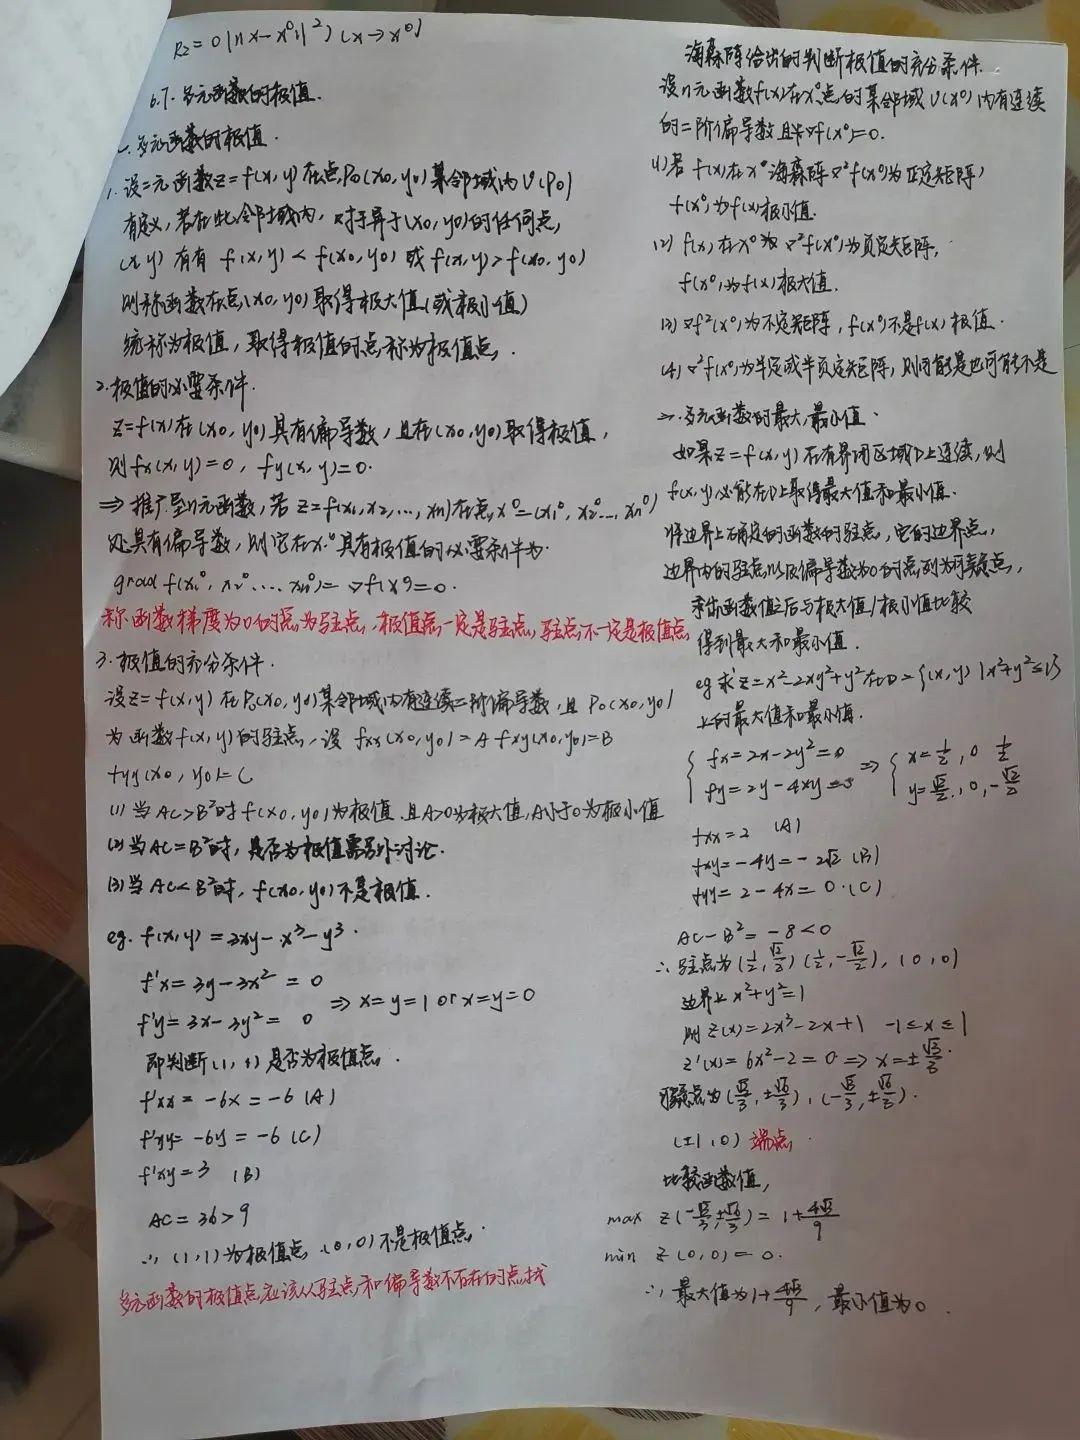 R2=o(||x-x⁰||²) (x→x⁰)
6.7. 多元函数的极值.
一. 多元函数的极值.
1. 设二元函数z=f(x,y)在点P0(x0,y0)某邻域内U(P0)
有定义, 若在此邻域内, 对于异于(x0,y0)的任何点,
(x,y) 有有 f(x,y)<f(x0,y0) 或 f(x,y)>f(x0,y0)
则称函数在点(x0,y0)取得极大值(或极小值)
统称为极值, 取得极值的点称为极值点.
2. 极值的必要条件.
z=f(x)在(x0,y0)具有偏导数, 且在(x0,y0)取得极值,
则fx(x,y)=0, fy(x,y)=0.
⇒推广至n元函数, 若z=f(x1,x2,...,xn)在点x⁰=(x1⁰,x2⁰...,xn⁰)
处具有偏导数, 则它在x⁰具有极值的必要条件为.
grad f(x1⁰,x2⁰....xn⁰)=▽f(x⁰)=0.
称函数梯度为0的点为驻点, 极值点一定是驻点, 驻点不一定是极值点
3. 极值的充分条件.
设z=f(x,y)在P0(x0,y0)某邻域内有连续二阶偏导数, 且P0(x0,y0)
为函数f(x,y)的驻点, 设 fxx(x0,y0)=A fxy(x0,y0)=B
fyy(x0,y0)=C
(1) 当AC>B²时f(x0,y0)为极值, 且A>0为极大值,A小于0为极小值
(2) 当AC=B²时, 是否为极值需另外讨论.
(3) 当AC<B²时, f(x0,y0)不是极值.
eg. f(x,y)=3xy-x³-y³.
f'x=3y-3x²=0
f'y=3x-3y²=0 ⇒x=y=1 or x=y=0
即判断(1,1)是否为极值点.
f'xx=-6x=-6 (A)
f'yy=-6y=-6 (C)
f'xy=3 (B)
AC=36>9
∴(1,1)为极值点 (0,0)不是极值点.
多元函数的极值点应该从驻点和偏导数不存在的点找
海森阵给出的判断极值的充分条件.
设n元函数f(x)在x⁰点的某邻域U(x⁰)内有连续
的二阶偏导数且▽f(x⁰)=0.
(1)若f(x)在x⁰海森阵▽²f(x⁰)为正定矩阵,
f(x⁰)为f(x)极小值.
(2) f(x)在x⁰ ▽²f(x⁰)为负定矩阵,
f(x⁰)为f(x)极大值.
(3) ▽f²(x⁰)为不定矩阵, f(x⁰)不是f(x)极值.
(4) ▽²f(x⁰)为半定或半负定矩阵, 则可能是也可能不是
二. 多元函数的最大,最小值.
如果z=f(x,y)在有界闭区域D上连续,则
f(x,y)必能在D上取得最大值和最小值.
将边界上确定的函数的驻点, 它的边界点,
边界内的驻点以及偏导数为0的点列为可疑点,
求出函数值之后与极大值/极小值比较
得到最大和最小值.
eg 求z=x²-2xy²+y²在D={(x,y)|x²+y²≤1}
上的最大值和最小值.
fx=2x-2y²=0
fy=2y-4xy=0 ⇒ x=1/2, 0 1/2
y=√2/2, 0, -√2/2
fxx=2 (A)
fxy=-4y=-2√2 (B)
fyy=2-4x=0. (C)
AC-B²=-8<0
∴驻点为(1/2,√2/2) (1/2,-√2/2), (0,0)
边界上x²+y²=1
则z(x)=2x³-2x+1 -1≤x≤1
z'(x)=6x²-2=0⇒x=±√3/3.
可疑点为(√3/3,±√6/3), (-√3/3,±√6/3).
(±1,0) 端点.
比较函数值,
max z(-√3/3,±√6/3)=1+4√3/9
min z(0,0)=0.
∴最大值为1+4√3/9, 最小值为0.